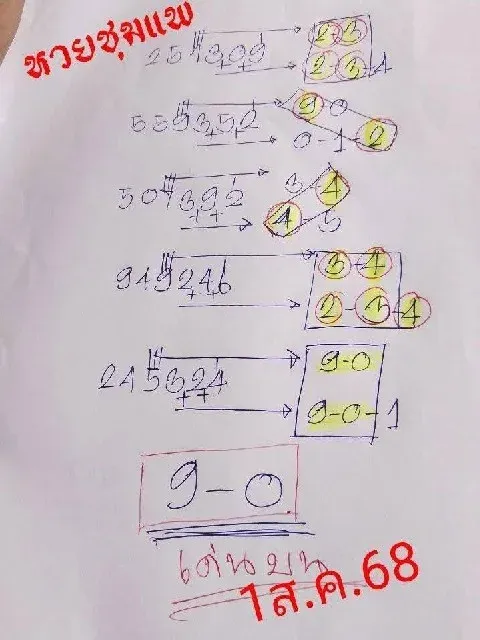 หวยชุมแพ
2 3
254309
2 3-4
9 0
5553352
0-1-2
3-4
507392
4-5
3-4
949246
2-3-4
9-0
245324
9-0-1
9-0
เด่นบน
1ส.ค.68